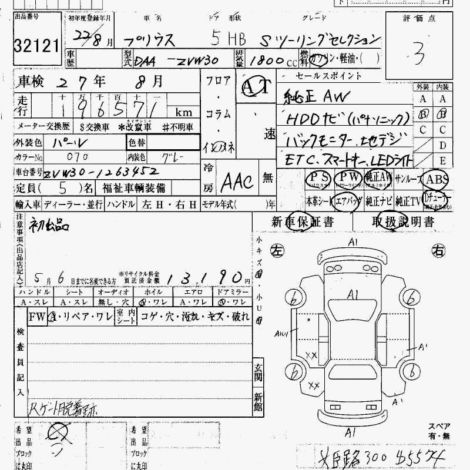 出品番号 初年度登録年月 車名 ドア 形状 グレード 評価点
32121 22/8月 プリウス 5 HB Sツーリングセレクション 3
型式 DAA ZVW30 排気量 1800cc 燃料 ガソリン・軽油・( )
車検 27年 8月
走行 96571 km
メーター交換歴 S交換車 *改竄車 #不明車
外装色 パール 色替
カラーNO 070 内装色 グレー
車台番号 ZVW30-1263452
定員 ( 5 ) 名 福祉車輌装備
輸入車 ディーラー・並行 ハンドル 左H・右H
フロア・コラム・インパネ AT 速
冷房 AAC 無
セールスポイント
純正AW
HDDナビ(パナソニック)
バックモニター、地デジ
ETC、スマートキー、LEDライト
外装 内装
A A
B B
C C
D
E
PS PW 純正AW サンルーフ ABS
本革シート エアバック 純正ナビ 純正TV
新車保証書 取扱説明書
注意事項(出品店記入)
初出品
5月 6日までに名義変更できる ※リサイクル料金 預託済金額 13,190 円
ハンドル シート オーディオ ホイル エアロ ドアミラー
A・スレ A・スレ 無し・穴 A・ワレ A・ワレ A・ワレ
FW A・リペア・ワレ 室内シート コゲ・穴・汚れ・キズ・破れ
検査員記入
小キズ 小U
玄関 新館
左 右
A1
6 6
AW1 A1
XX
6 6
XX
A1
スペア 有・無
希望出品ブロックに丸印
希望出品ブロックに丸印
姫路300